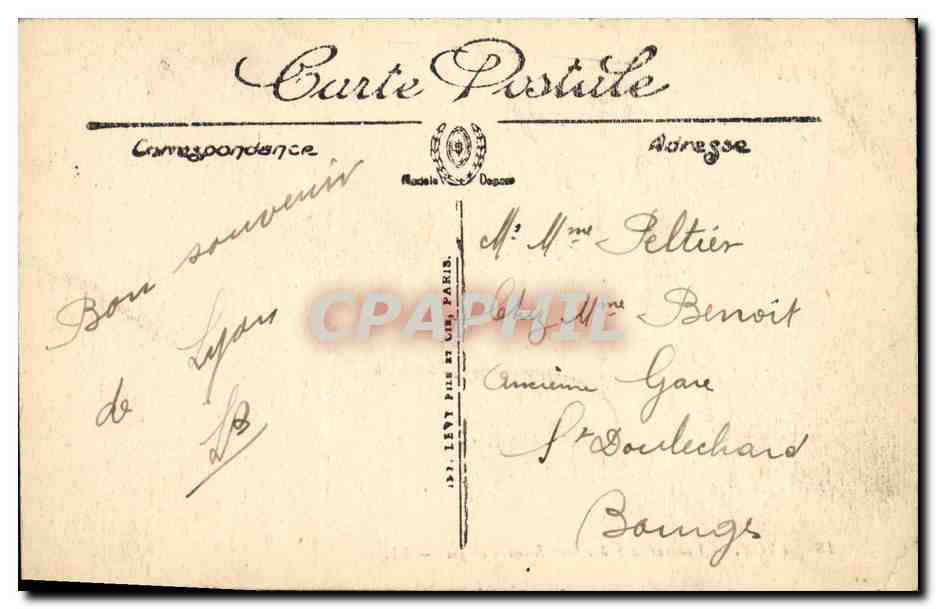 Carte Postale
Correspondance
Adresse
Modele Depose
Bon souvenir
de Lyon
LB
LEVY FILS ET CIE, PARIS.
Mr Mme Peltier
Chez Mme Benoit
Ancienne Gare
St Doulechard
Bourges
CPAPHIL